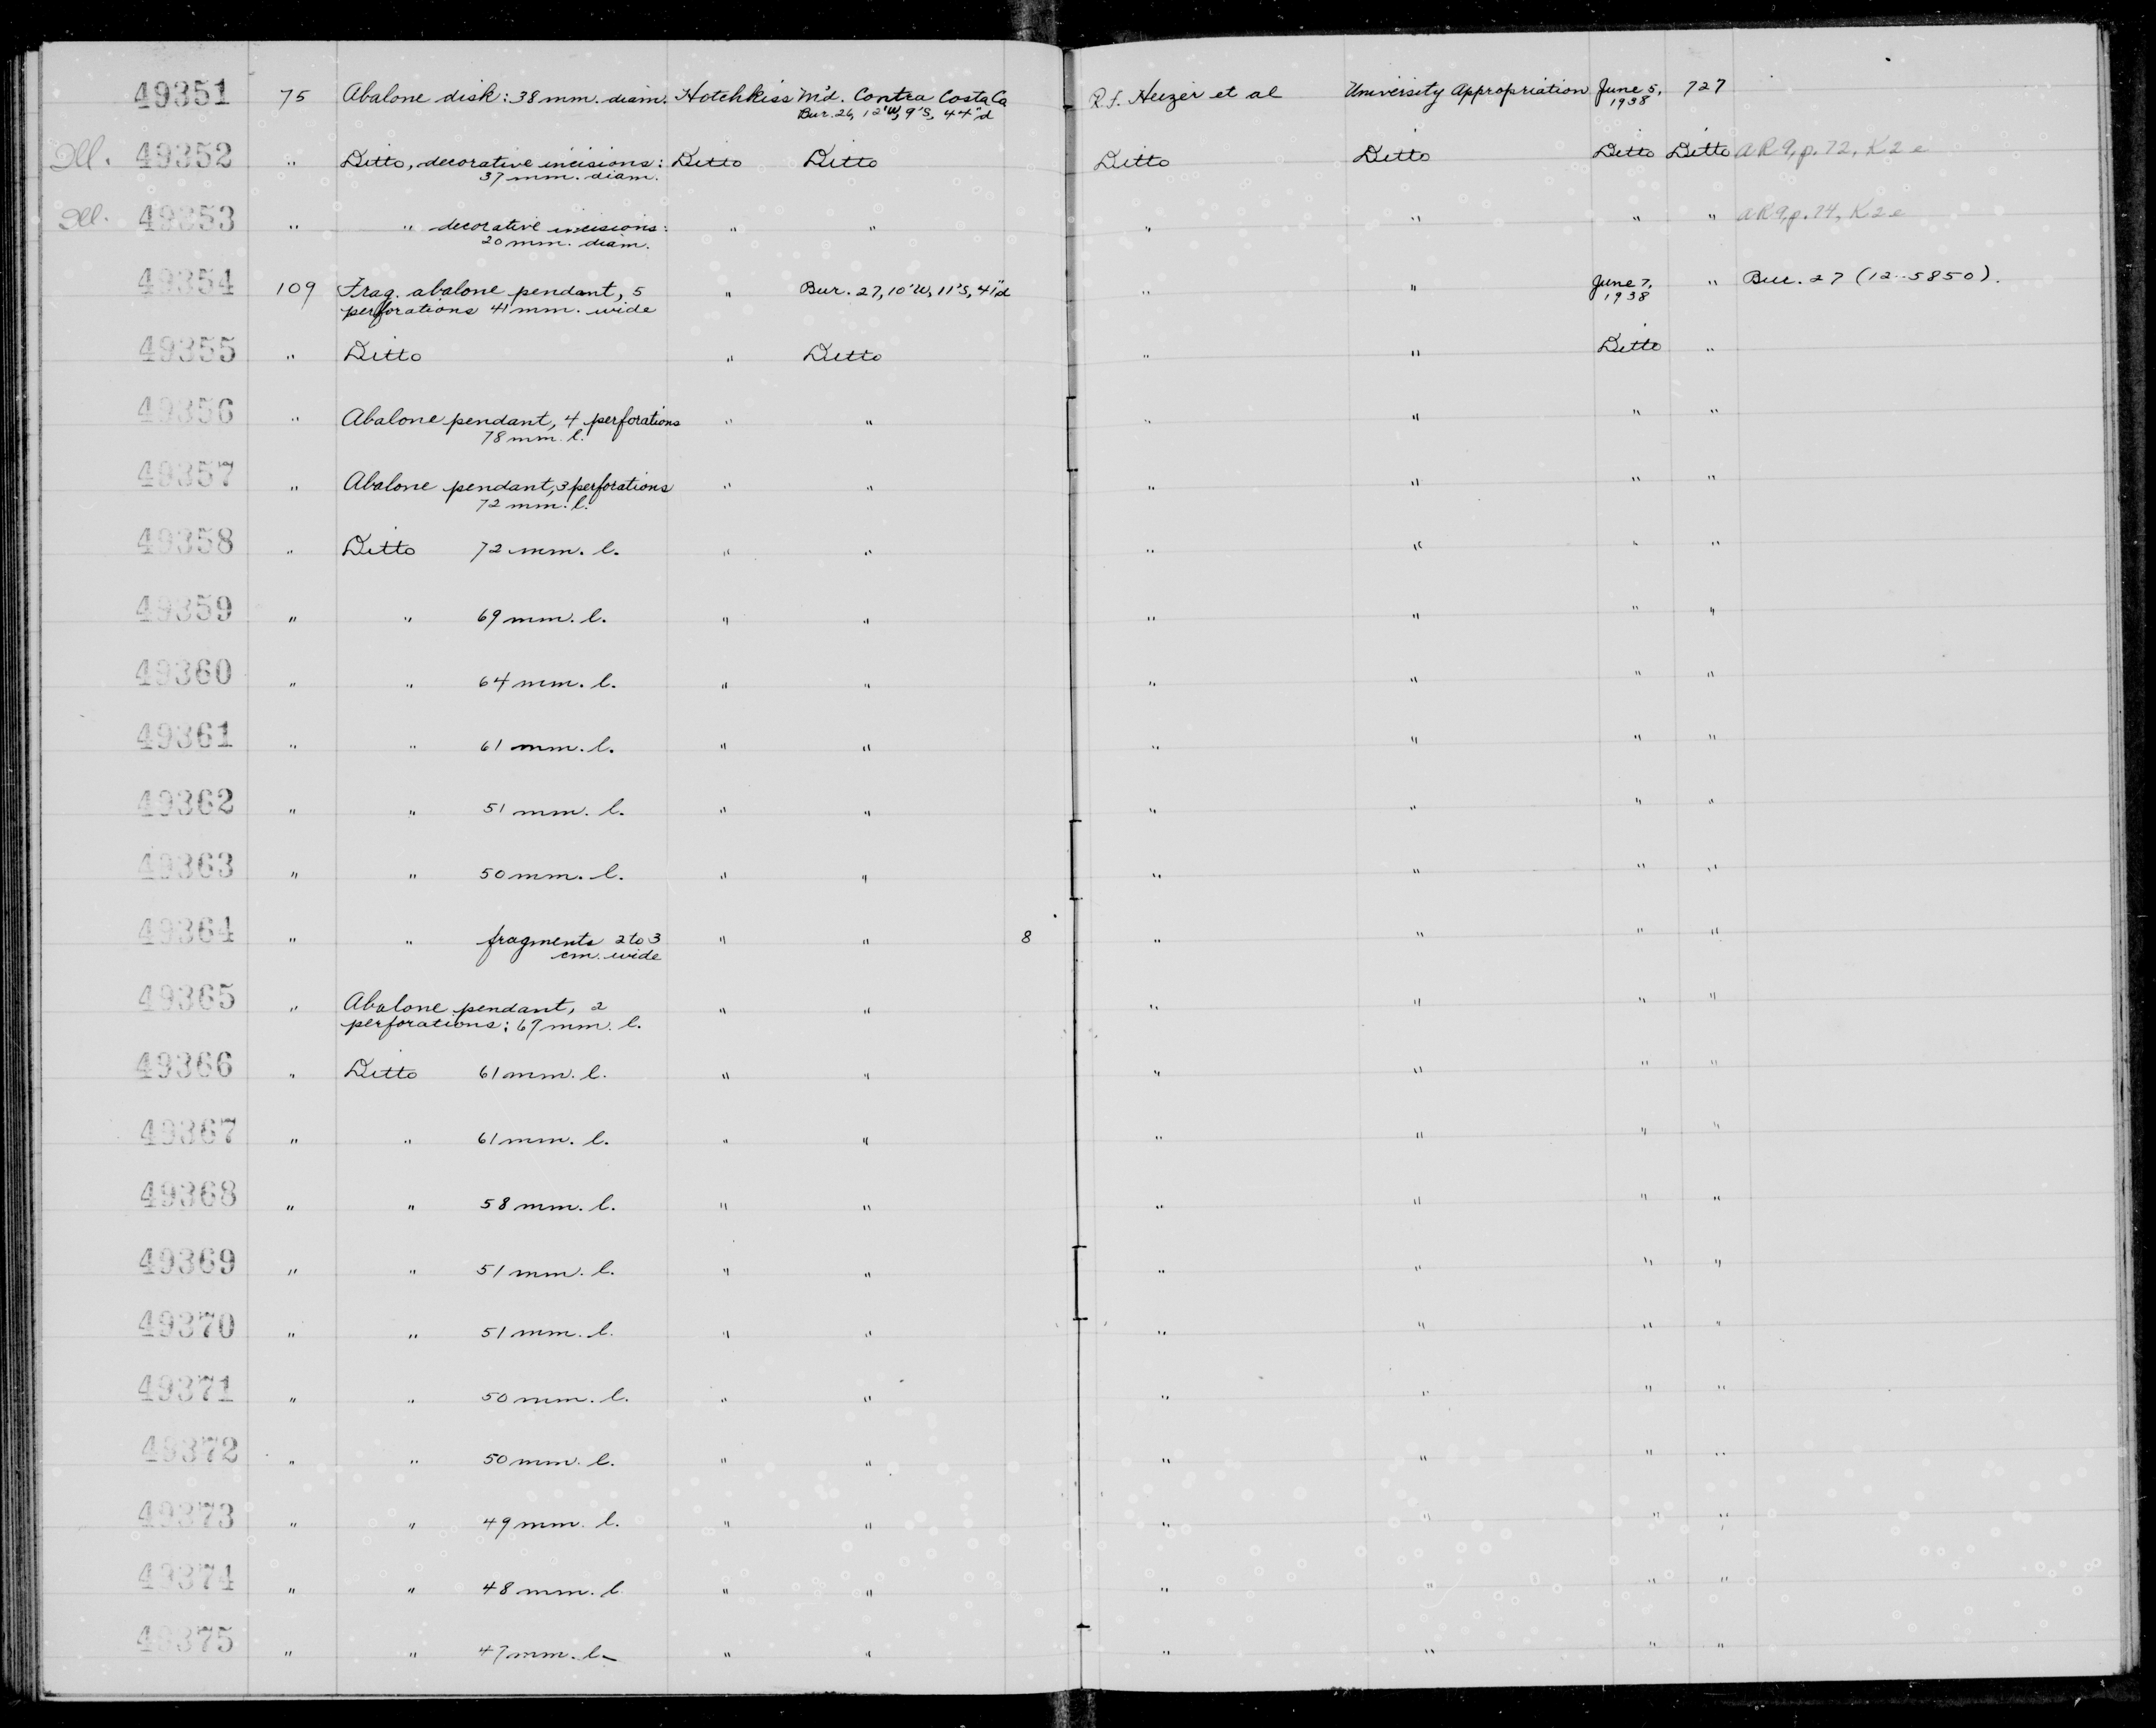 49351 75 Abalone disk: 38 mm. diam. Hotchkiss M'd. Contra Costa Co R. F. Heizer et al University Appropriation June 5, 727
Bur. 26, 12'W, 9'S, 44"d 1938
Ill. 49352 " Ditto, decorative incisions: Ditto Ditto Ditto Ditto Ditto Ditto AR 9, p. 72, K2e
37 mm. diam.
Ill. 49353 " " decorative incisions: " " " " " " AR 9, p. 74, K2e
20 mm. diam.
49354 109 Frag. abalone pendant, 5 " Bur. 27, 10'W, 11'S, 41"d " " June 7, " Bur. 27 (12-5850).
perforations 41 mm. wide 1938
49355 " Ditto " Ditto " " Ditto "
49356 " Abalone pendant, 4 perforations " " " " " "
78 mm. l.
49357 " Abalone pendant, 3 perforations " " " " " "
72 mm. l.
49358 " Ditto 72 mm. l. " " " " " "
49359 " " 69 mm. l. " " " " " "
49360 " " 64 mm. l. " " " " " "
49361 " " 61 mm. l. " " " " " "
49362 " " 51 mm. l. " " " " " "
49363 " " 50 mm. l. " " " " " "
49364 " " fragments 2 to 3 " " 8 " " " "
cm. wide
49365 " Abalone pendant, 2 " " " " " "
perforations: 69 mm. l.
49366 " Ditto 61 mm. l. " " " " " "
49367 " " 61 mm. l. " " " " " "
49368 " " 58 mm. l. " " " " " "
49369 " " 51 mm. l. " " " " " "
49370 " " 51 mm. l. " " " " " "
49371 " " 50 mm. l. " " " " " "
49372 " " 50 mm. l. " " " " " "
49373 " " 49 mm. l. " " " " " "
49374 " " 48 mm. l " " " " " "
49375 " " 47 mm. l. " " " " " "